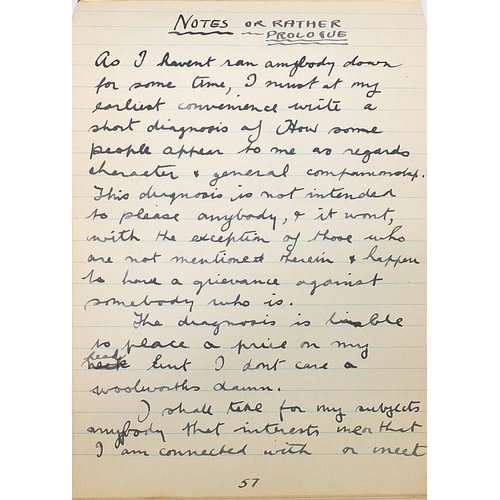 NOTES OR RATHER
PROLOGUE
As I havent ran anybody down
for some time, I must at my
earliest convenience write a
short diagnosis of How some
people appear to me as regards
character & general companionship.
This diagnosis is not intended
to please anybody, & it wont,
with the exception of those who
are not mentioned therein & happen
to have a grievance against
somebody who is.
The diagnosis is liable
to place a price on my
head
neck but I dont care a
woolworths damn.
I shall take for my subjects
anybody that interests me or that
I am connected with or meet
57